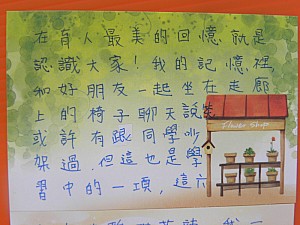 在育人最美的回憶就是
認識大家!我的記憶裡
和好朋友一起坐在走廊
上的椅子聊天說笑
或許有跟同學吵
架過,但這也是學
習中的一項,這六
Flower Shop